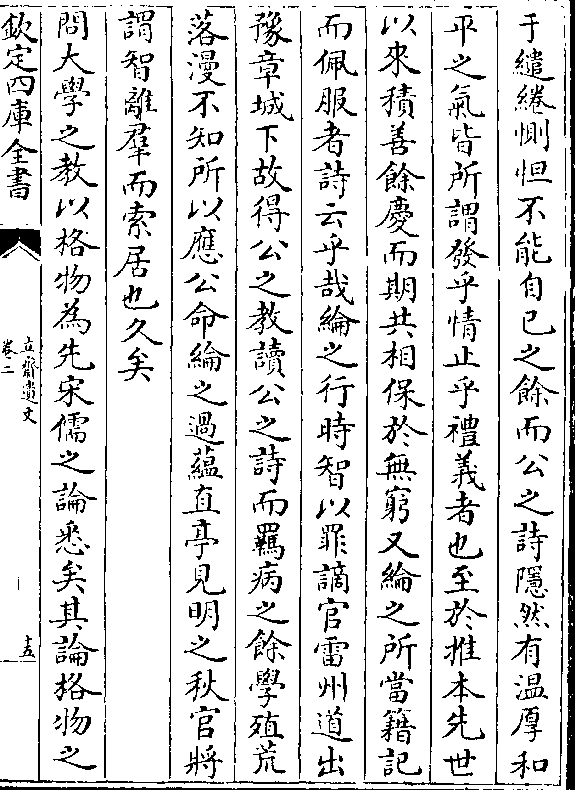 于繾綣惻怛不能自已之餘而公之詩隱然有温厚和
平之氣皆所謂發乎情止乎禮義者也至於推本先世
以來積善餘慶而期共相保於無窮又綸之所當籍記
而佩服者詩云乎哉綸之行時智以罪謫官雷州道出
豫章城下故得公之教讀公之詩而羈病之餘學殖荒
落漫不知所以應公命綸之過藴直亭見明之秋官將
謂智離羣而索居也久矣
問大學之教以格物為先宋儒之論悉矣其論格物之
欽定四庫全書
立齋遺文
卷二
十五